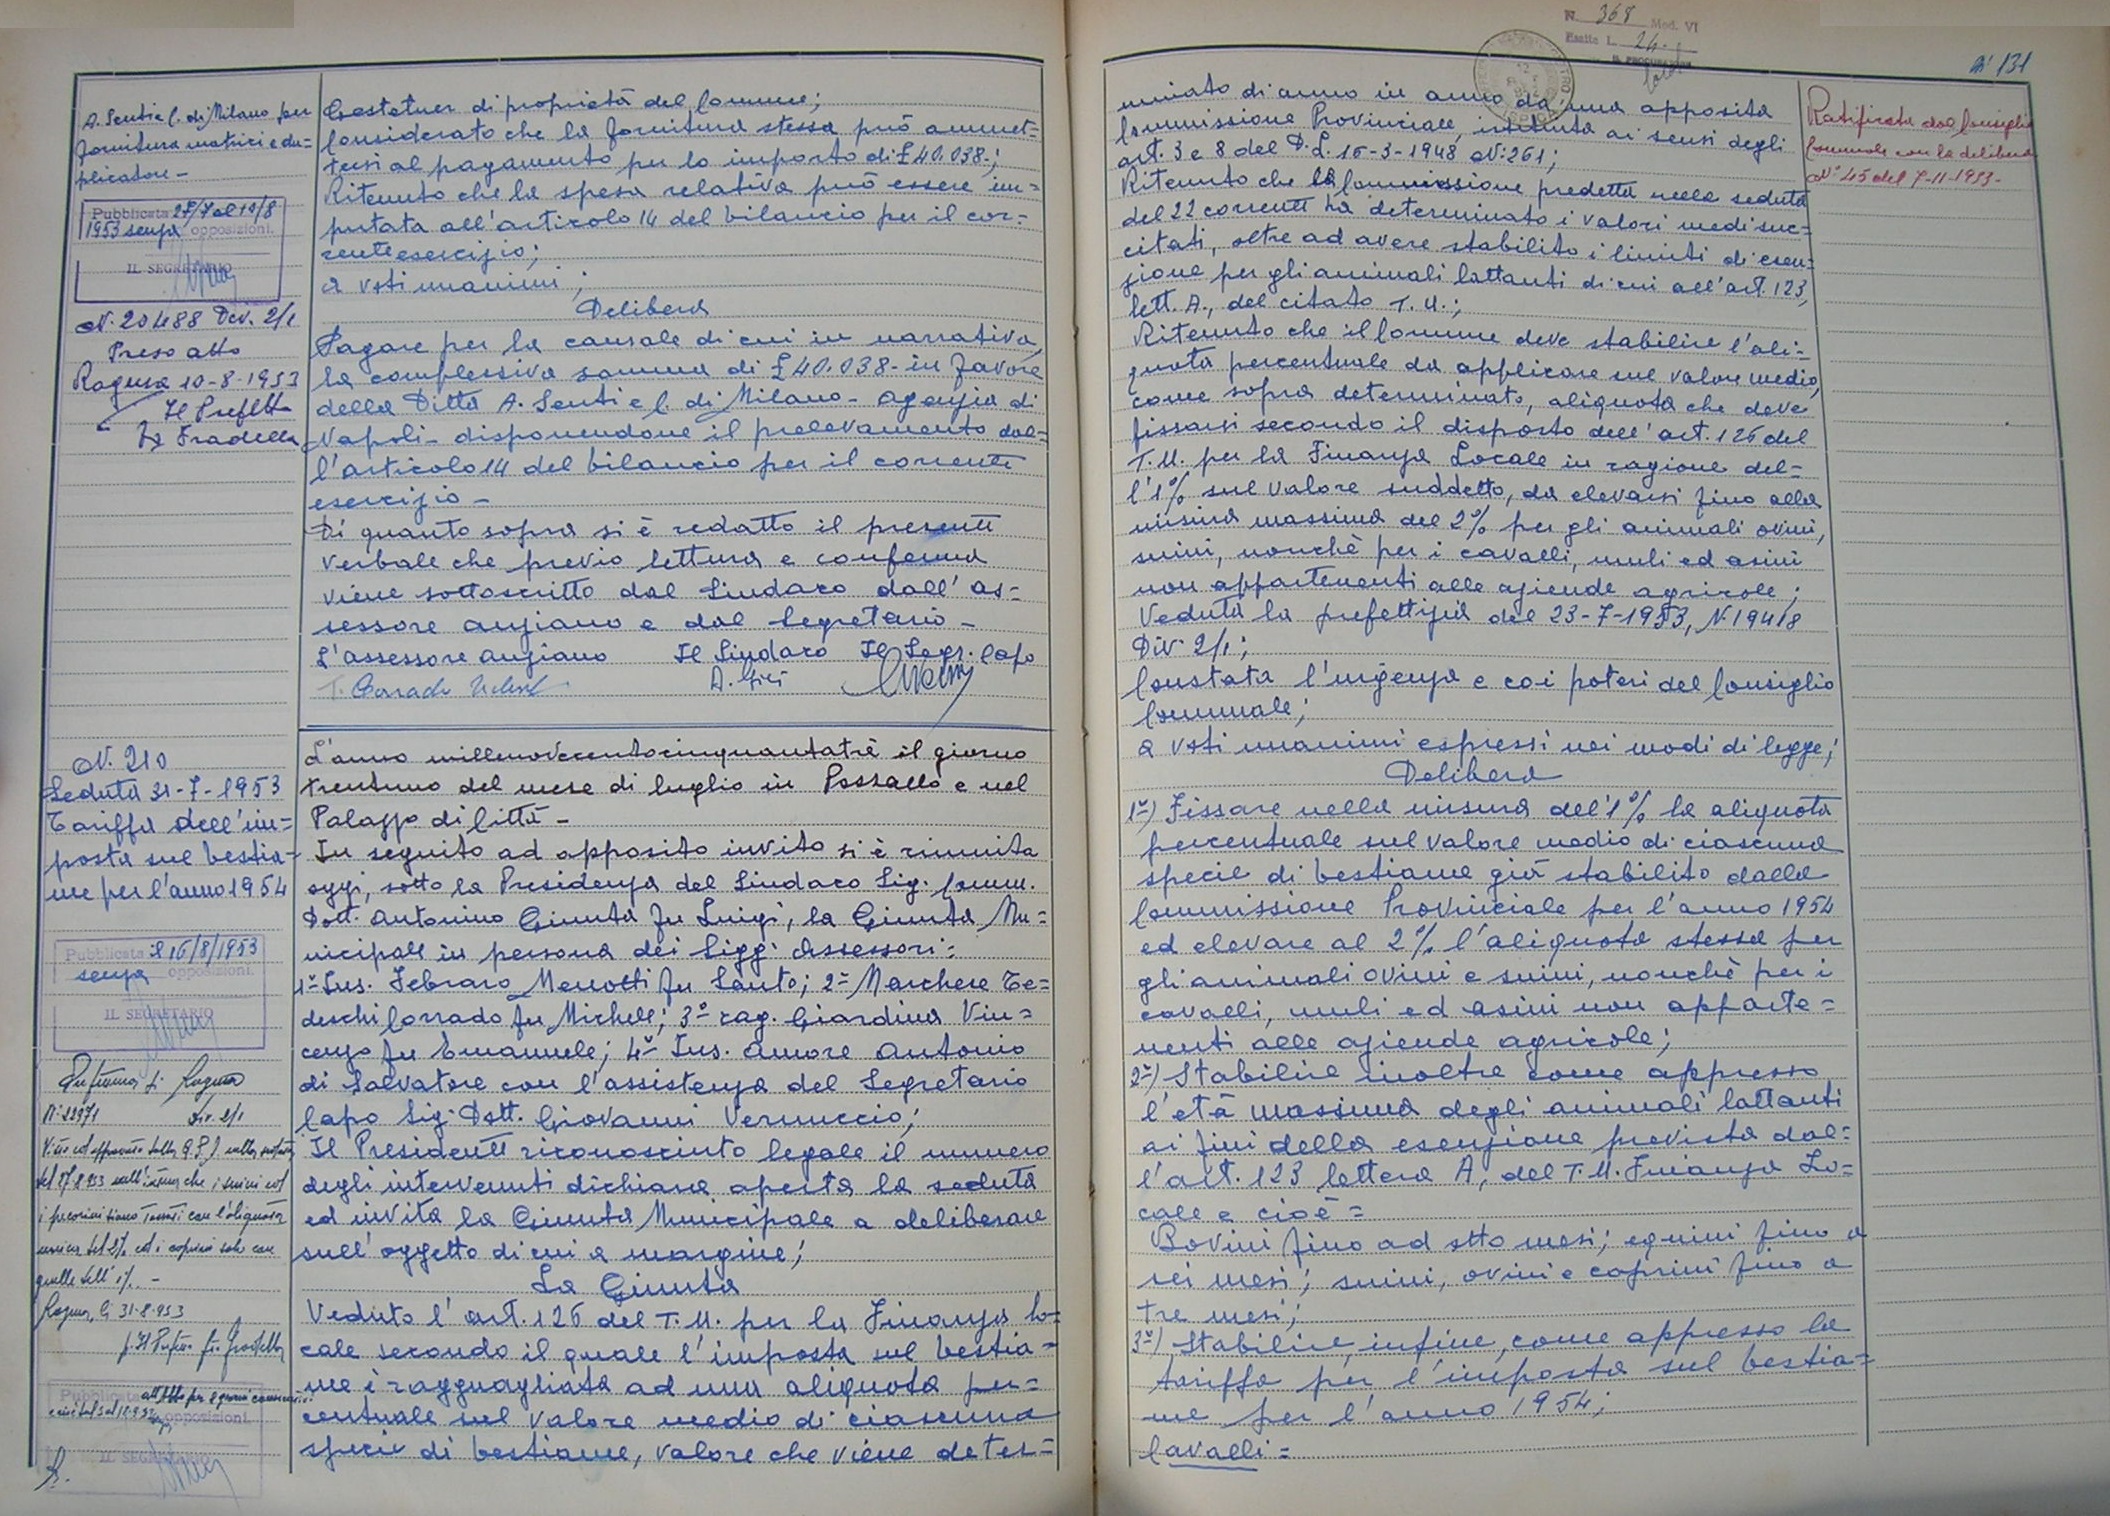 A. Senti e C. di Milano per
fornitura matrici e du=
plicatore -
Pubblicata 27/7 al 10/8
1953 senza opposizioni.
IL SEGRETARIO
N. 20488 Div. 2/1
Preso atto
Ragusa 10-8-1953
Il Prefetto
Fradella
N. 210
Seduta 31-7-1953
Tariffa dell'im=
posta sul bestia=
me per l'anno 1954
Pubblicata il 16/8/1953
senza opposizioni.
IL SEGRETARIO
Prefettura di Ragusa
Div. 2/1
Visto ed approvato dalla G.P.A. nella seduta
del 27-8-953 nell'intesa che i suini ed
i pecorini siano tassati con l'aliquota
unica del 2% ed i caprini solo con
quella dell'1%. -
Ragusa, li 31-8-953
Pubblicata all'Albo per 8 giorni consecutivi
opposizioni.
IL SEGRETARIO
Gestetner di proprietà del Comune;
Considerato che la fornitura stessa può ammet=
tersi al pagamento per lo importo di £ 40.038-;
Ritenuto che la spesa relativa può essere im=
putata all'articolo 14 del bilancio per il cor=
rente esercizio;
a voti unanimi;
Delibera
Pagare per la causale di cui in narrativa,
la complessiva somma di £ 40.038- in favore
della Ditta A. Senti e C. di Milano - Agenzia di
Napoli - disponendone il prelevamento dal=
l'articolo 14 del bilancio per il corrente
esercizio -
Di quanto sopra si è redatto il presente
verbale che previo lettura e conferma
viene sottoscritto dal Sindaco dall'as=
sessore anziano e dal Segretario -
L'assessore anziano Il Sindaco Il Segr. Capo
T. Corrado
L'anno millenovecentocinquantatrè il giorno
trentuno del mese di luglio in Pozzallo e nel
Palazzo di Città -
In seguito ad apposito invito si è riunita
oggi, sotto la Presidenza del Sindaco Sig. Comm.
Dott. Antonino Giunta fu Luigi, la Giunta Mu=
nicipale in persona dei Sigg. Assessori:
1º Ins. Febraro Menotti fu Santo; 2º Marchese Te=
deschi Corrado fu Michele; 3º rag. Giardina Vin=
cenzo fu Emanuele; 4º Ins. Amore Antonio
di Salvatore con l'assistenza del Segretario
Capo Sig. Dott. Giovanni Vernuccio;
Il Presidente riconosciuto legale il numero
degli intervenuti dichiara aperta la seduta
ed invita la Giunta Municipale a deliberare
sull'oggetto di cui a margine;
La Giunta
Veduto l'art. 126 del T.U. per la Finanza lo=
cale secondo il quale l'imposta sul bestia=
me è ragguagliata ad una aliquota per=
centuale sul valore medio di ciascuna
specie di bestiame, valore che viene deter=
N. 368 Mod. VI
Esatte L. 24.-
IL PROCURATORE
131
minato di anno in anno da una apposita
Commissione Provinciale, istituita ai sensi degli
art. 3 e 8 del D.L. 16-3-1948 N. 261;
Ritenuto che la Commissione predetta nella seduta
del 22 corrente ha determinato i valori medi suc=
citati, oltre ad avere stabilito i limiti di esen=
zione per gli animali lattanti di cui all'art. 123,
lett. A., del citato T.U.;
Ritenuto che il Comune deve stabilire l'ali=
quota percentuale da applicare sul valore medio,
come sopra determinato, aliquota che deve
fissarsi secondo il disposto dell'art. 126 del
T.U. per la Finanza Locale in ragione del=
l'1% sul valore suddetto, da elevarsi fino alla
misura massima del 2% per gli animali ovini,
suini, nonchè per i cavalli, muli ed asini
non appartenenti alle aziende agricole;
Veduta la prefettizia del 23-7-1953, N. 19418
Div. 2/1;
Constata l'urgenza e coi poteri del Consiglio
Comunale;
a voti unanimi espressi nei modi di legge;
Delibera
1º) Fissare nella misura dell'1% la aliquota
percentuale sul valore medio di ciascuna
specie di bestiame già stabilito dalla
Commissione Provinciale per l'anno 1954
ed elevare al 2% l'aliquota stessa per
gli animali ovini e suini, nonchè per i
cavalli, muli ed asini non apparte=
nenti alle aziende agricole;
2º) Stabilire inoltre come appresso
l'età massima degli animali lattanti
ai fini della esenzione prevista dal=
l'art. 123 lettera A, del T.U. Finanza Lo=
cale e cioè =
Bovini fino ad otto mesi; equini fino a
sei mesi; suini, ovini e caprini fino a
tre mesi;
3º) Stabilire, infine, come appresso la
tariffa per l'imposta sul bestia=
me per l'anno 1954;
Cavalli =
Ratificata dal Consiglio
Comunale con la delibera
N. 45 del 7-11-1953-